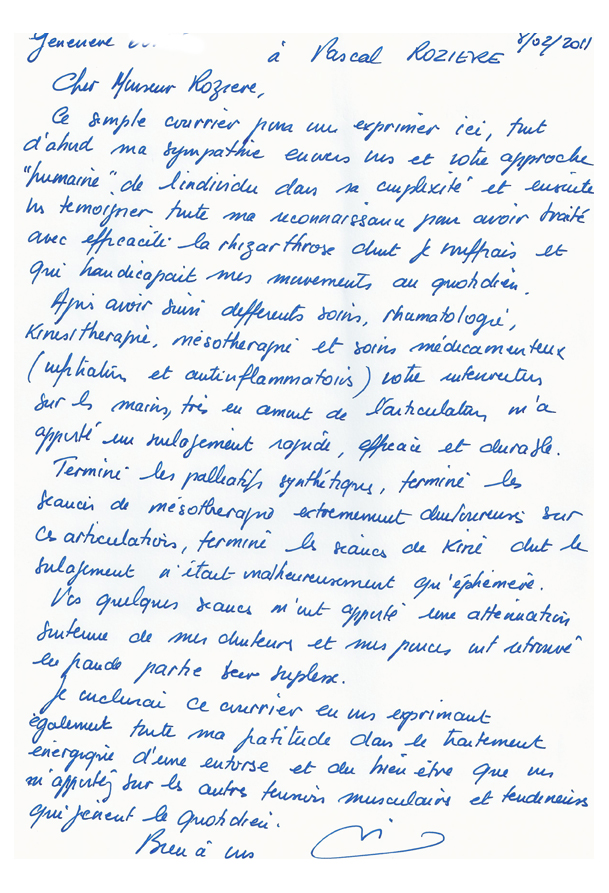 Genevieve
à Pascal ROZIERE 8/02/2011
Cher Monsieur Roziere,
Ce simple courrier pour vous exprimer ici, tout
d'abord ma sympathie envers vous et votre approche
"humaine" de l'individu dans sa complexité et ensuite
vous temoigner toute ma reconnaissance pour avoir traité
avec efficacité la rhizarthrose dont je souffrais et
qui handicapait mes mouvements au quotidien.
Après avoir suivi differents soins, rhumatologie,
Kinesitherapie, mésotherapie et soins médicamenteux
(infiltrations et antiinflammatoires) votre intervention
sur les mains, très en amont de l'articulation m'a
apporté un soulagement rapide, efficace et durable.
Terminé les palliatifs synthétiques, terminé les
seances de mésotherapie extremement douloureuses sur
ces articulations, terminé les séances de Kiné dont le
soulagement n'était malheureusement qu'éphémère.
Vos quelques seances m'ont apporté une attenuation
soutenue de mes douleurs et mes pouces ont retrouvé
en grande partie leur souplesse.
Je conclurai ce courrier en vous exprimant
également toute ma gratitude dans le traitement
énergique d'une entorse et du bien être que vous
m'apportez sur les autres tensions musculaires et tendineuses
qui gènent le quotidien.
Bien à vous